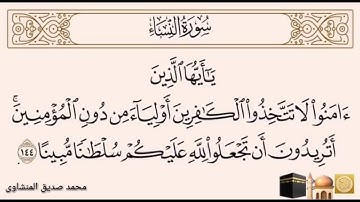 سُورَةُ النِّسَاءِ
يَـٰٓأَيُّهَا ٱلَّذِينَ
ءَامَنُوا۟ لَا تَتَّخِذُوا۟ ٱلْكَـٰفِرِينَ أَوْلِيَآءَ مِن دُونِ ٱلْمُؤْمِنِينَ ۚ
أَتُرِيدُونَ أَن تَجْعَلُوا۟ لِلَّهِ عَلَيْكُمْ سُلْطَـٰنًا مُّبِينًا ١٤٤
محمد صديق المنشاوى